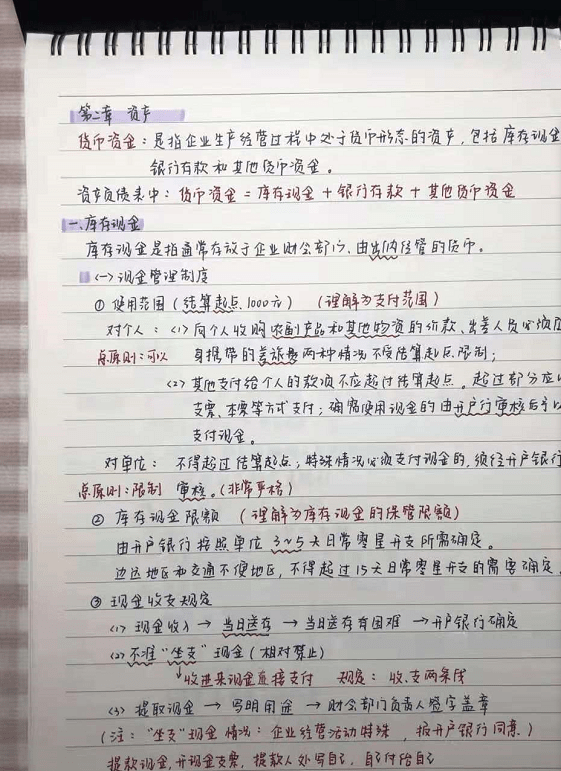 第二章 资产
货币资金：是指企业生产经营过程中处于货币形态的资产，包括库存现金
银行存款和其他货币资金。
资产负债表中：货币资金 = 库存现金 + 银行存款 + 其他货币资金
一、库存现金
库存现金是指通常存放于企业财会部门、由出纳经管的货币。
(一)现金管理制度
① 使用范围(结算起点1000元) (理解为支付范围)
对个人：(1) 向个人收购农副产品和其他物资的价款、出差人员必须
点原则：可以 身携带的差旅费两种情况不受结算起点限制；
(2) 其他支付给个人的款项不应超过结算起点。超过部分应
支票、本票等方式支付；确需使用现金的由开户行审核后予以
支付现金。
对单位： 不得超过结算起点；特殊情况必须支付现金的，须经开户银行
点原则：限制 审核。(非常严格)
② 库存现金限额 (理解为库存现金的保管限额)
由开户银行按照单位 3~5天日常零星开支所需确定。
边远地区和交通不便地区，不得超过15天日常零星开支的需要确定
③ 现金收支规定
(1) 现金收入 → 当日送存 → 当日送存有困难 → 开户银行确定
(2) 不准“坐支”现金(相对禁止)
↓收进来现金直接支付 规定：收、支两条线
(3) 提取现金 → 写明用途 → 财会部门负责人签字盖章
(注：“坐支”现金情况：企业经营活动特殊，报开户银行同意)
提款现金，开现金支票，提款人处写自己，自己付给自己